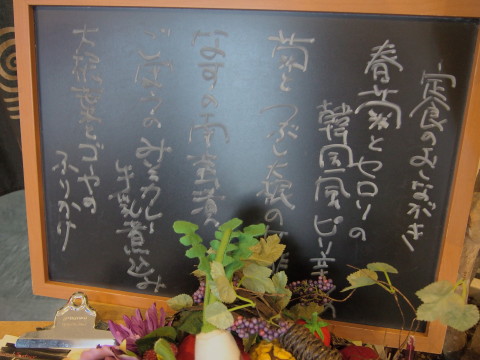 定食のおしながき
春菊とセロリの
韓国風ピリ辛
菊と つぶし大根の
なすの南蛮漬
ごぼうの みそカレー
牛乳煮込み
大根葉とゴーヤの
ふりかけ